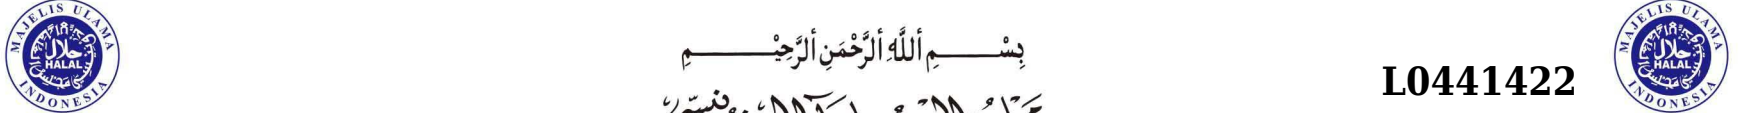 MAJELIS ULAMA INDONESIA
حلال
HALAL
بِسْــــمِ ٱللَّهِ ٱلرَّحْمَنِ ٱلرَّحِيْــــمِ
L0441422
MAJELIS ULAMA INDONESIA
حلال
HALAL